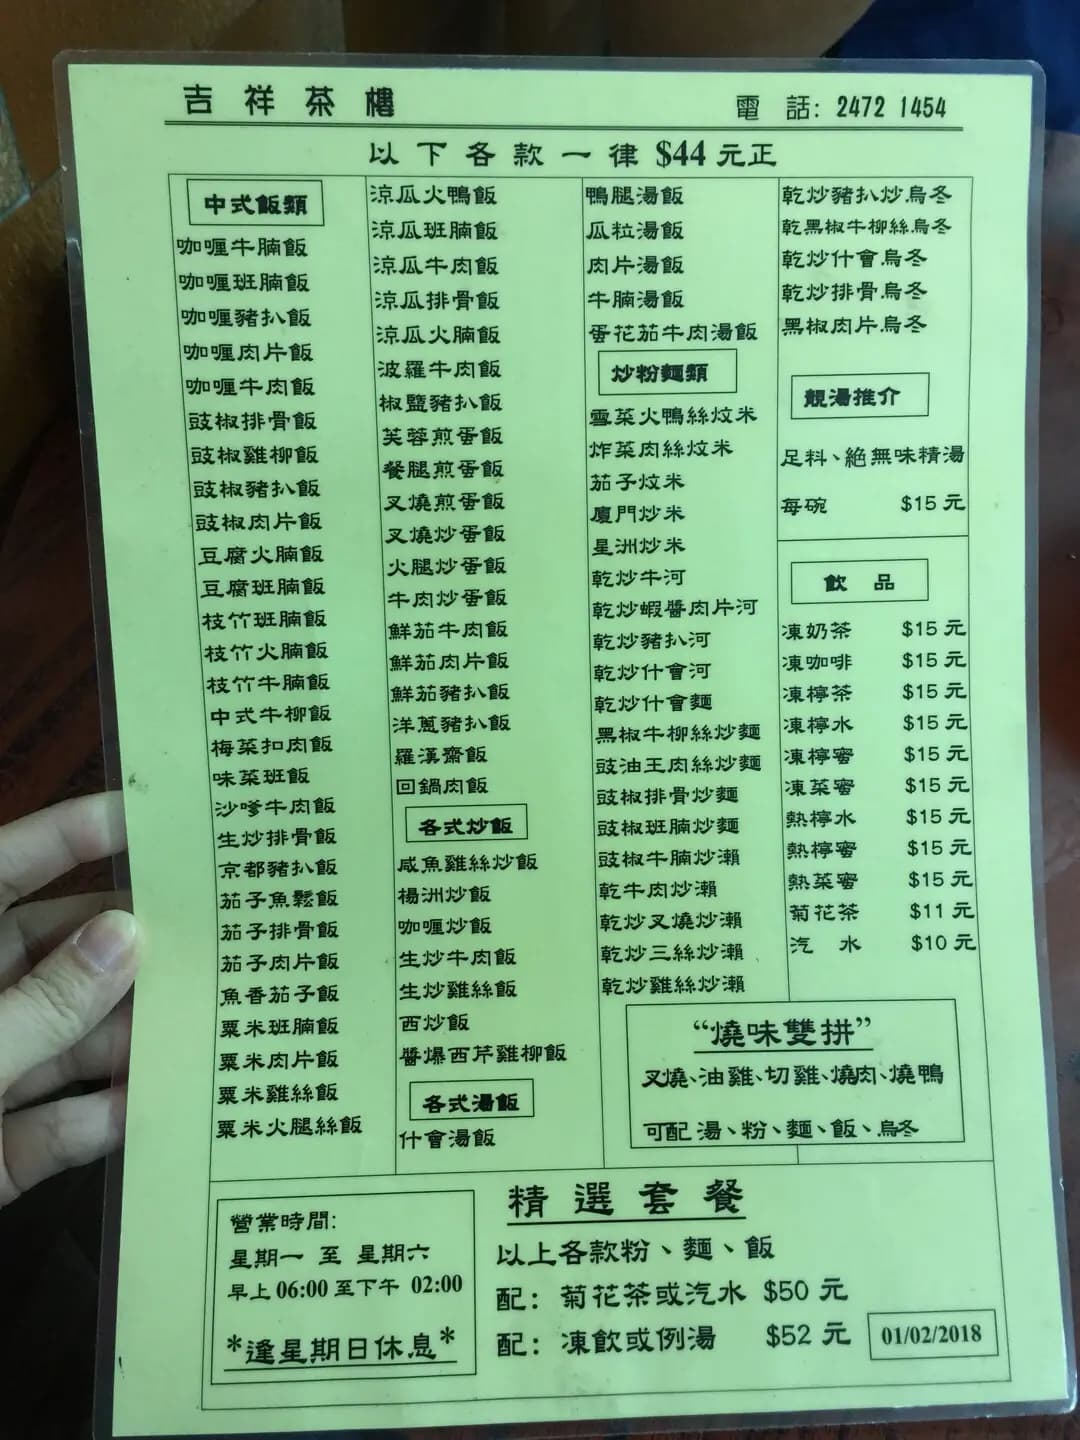 吉祥茶樓
電話: 2472 1454
以下各款一律 $44 元正
中式飯類
咖喱牛腩飯
咖喱班腩飯
咖喱豬扒飯
咖喱肉片飯
咖喱牛肉飯
豉椒排骨飯
豉椒雞柳飯
豉椒豬扒飯
豉椒肉片飯
豆腐火腩飯
豆腐班腩飯
枝竹班腩飯
枝竹火腩飯
枝竹牛腩飯
中式牛柳飯
梅菜扣肉飯
味菜班飯
沙嗲牛肉飯
生炒排骨飯
京都豬扒飯
茄子魚鬆飯
茄子排骨飯
茄子肉片飯
魚香茄子飯
粟米班腩飯
粟米肉片飯
粟米雞絲飯
粟米火腿絲飯
涼瓜火鴨飯
涼瓜班腩飯
涼瓜牛肉飯
涼瓜排骨飯
涼瓜火腩飯
波羅牛肉飯
椒鹽豬扒飯
芙蓉煎蛋飯
餐腿煎蛋飯
叉燒煎蛋飯
叉燒炒蛋飯
火腿炒蛋飯
牛肉炒蛋飯
鮮茄牛肉飯
鮮茄肉片飯
鮮茄豬扒飯
洋蔥豬扒飯
羅漢齋飯
回鍋肉飯
各式炒飯
咸魚雞絲炒飯
楊洲炒飯
咖喱炒飯
生炒牛肉飯
生炒雞絲飯
西炒飯
醬爆西芹雞柳飯
各式湯飯
什會湯飯
鴨腿湯飯
瓜粒湯飯
肉片湯飯
牛腩湯飯
蛋花茄牛肉湯飯
炒粉麵類
雪菜火鴨絲炆米
炸菜肉絲炆米
茄子炆米
廈門炒米
星洲炒米
乾炒牛河
乾炒蝦醬肉片河
乾炒豬扒河
乾炒什會河
乾炒什會麵
黑椒牛柳絲炒麵
豉油王肉絲炒麵
豉椒排骨炒麵
豉椒班腩炒麵
豉椒牛腩炒瀨
乾牛肉炒瀨
乾炒叉燒炒瀨
乾炒三絲炒瀨
乾炒雞絲炒瀨
乾炒豬扒炒烏冬
乾黑椒牛柳絲烏冬
乾炒什會烏冬
乾炒排骨烏冬
黑椒肉片烏冬
靚湯推介
足料、絕無味精湯
每碗 $15 元
飲品
凍奶茶 $15 元
凍咖啡 $15 元
凍檸茶 $15 元
凍檸水 $15 元
凍檸蜜 $15 元
凍菜蜜 $15 元
熱檸水 $15 元
熱檸蜜 $15 元
熱菜蜜 $15 元
菊花茶 $11 元
汽水 $10 元
“燒味雙拼”
叉燒、油雞、切雞、燒肉、燒鴨
可配 湯、粉、麵、飯、烏冬
營業時間:
星期一 至 星期六
早上 06:00 至下午 02:00
*逢星期日休息*
精選套餐
以上各款粉、麵、飯
配: 菊花茶或汽水 $50 元
配: 凍飲或例湯 $52 元
01/02/2018